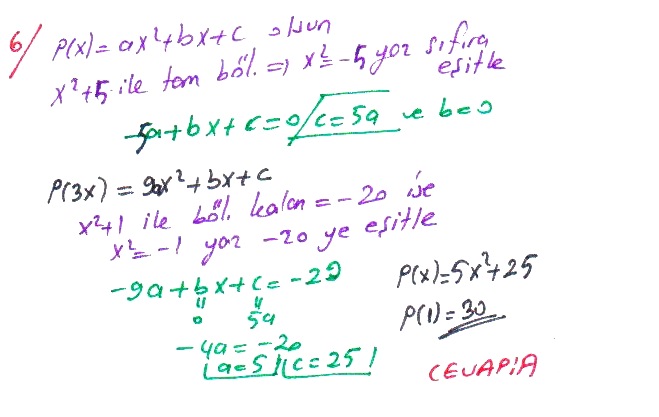 6/ P(x)=ax²+bx+c olsun
x²+5 ile tam böl. ⇒ x²=-5 yaz sıfıra eşitle
-5a+bx+c=0 / c=5a ve b=0
P(3x)=9ax²+bx+c
x²+1 ile böl. kalan=-20 ise
x²=-1 yaz -20 ye eşitle
-9a+bx+c=-20
" "
0 5a
-4a=-20
a=5 c=25
P(x)=5x²+25
P(1)=30
CEVAP:A